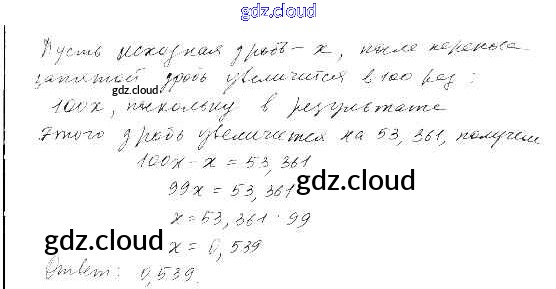 gdz.cloud
Пусть исходная дробь - x, после переноса
запятой дробь увеличится в 100 раз:
gdz.cloud
100x, поскольку в результате
этого дробь увеличится на 53,361, получем
100x - x = 53,361
99x = 53,361
gdz.cloud
x = 53,361 : 99
gdz.cloud
x = 0,539
Ответ: 0,539.
gdz.cloud